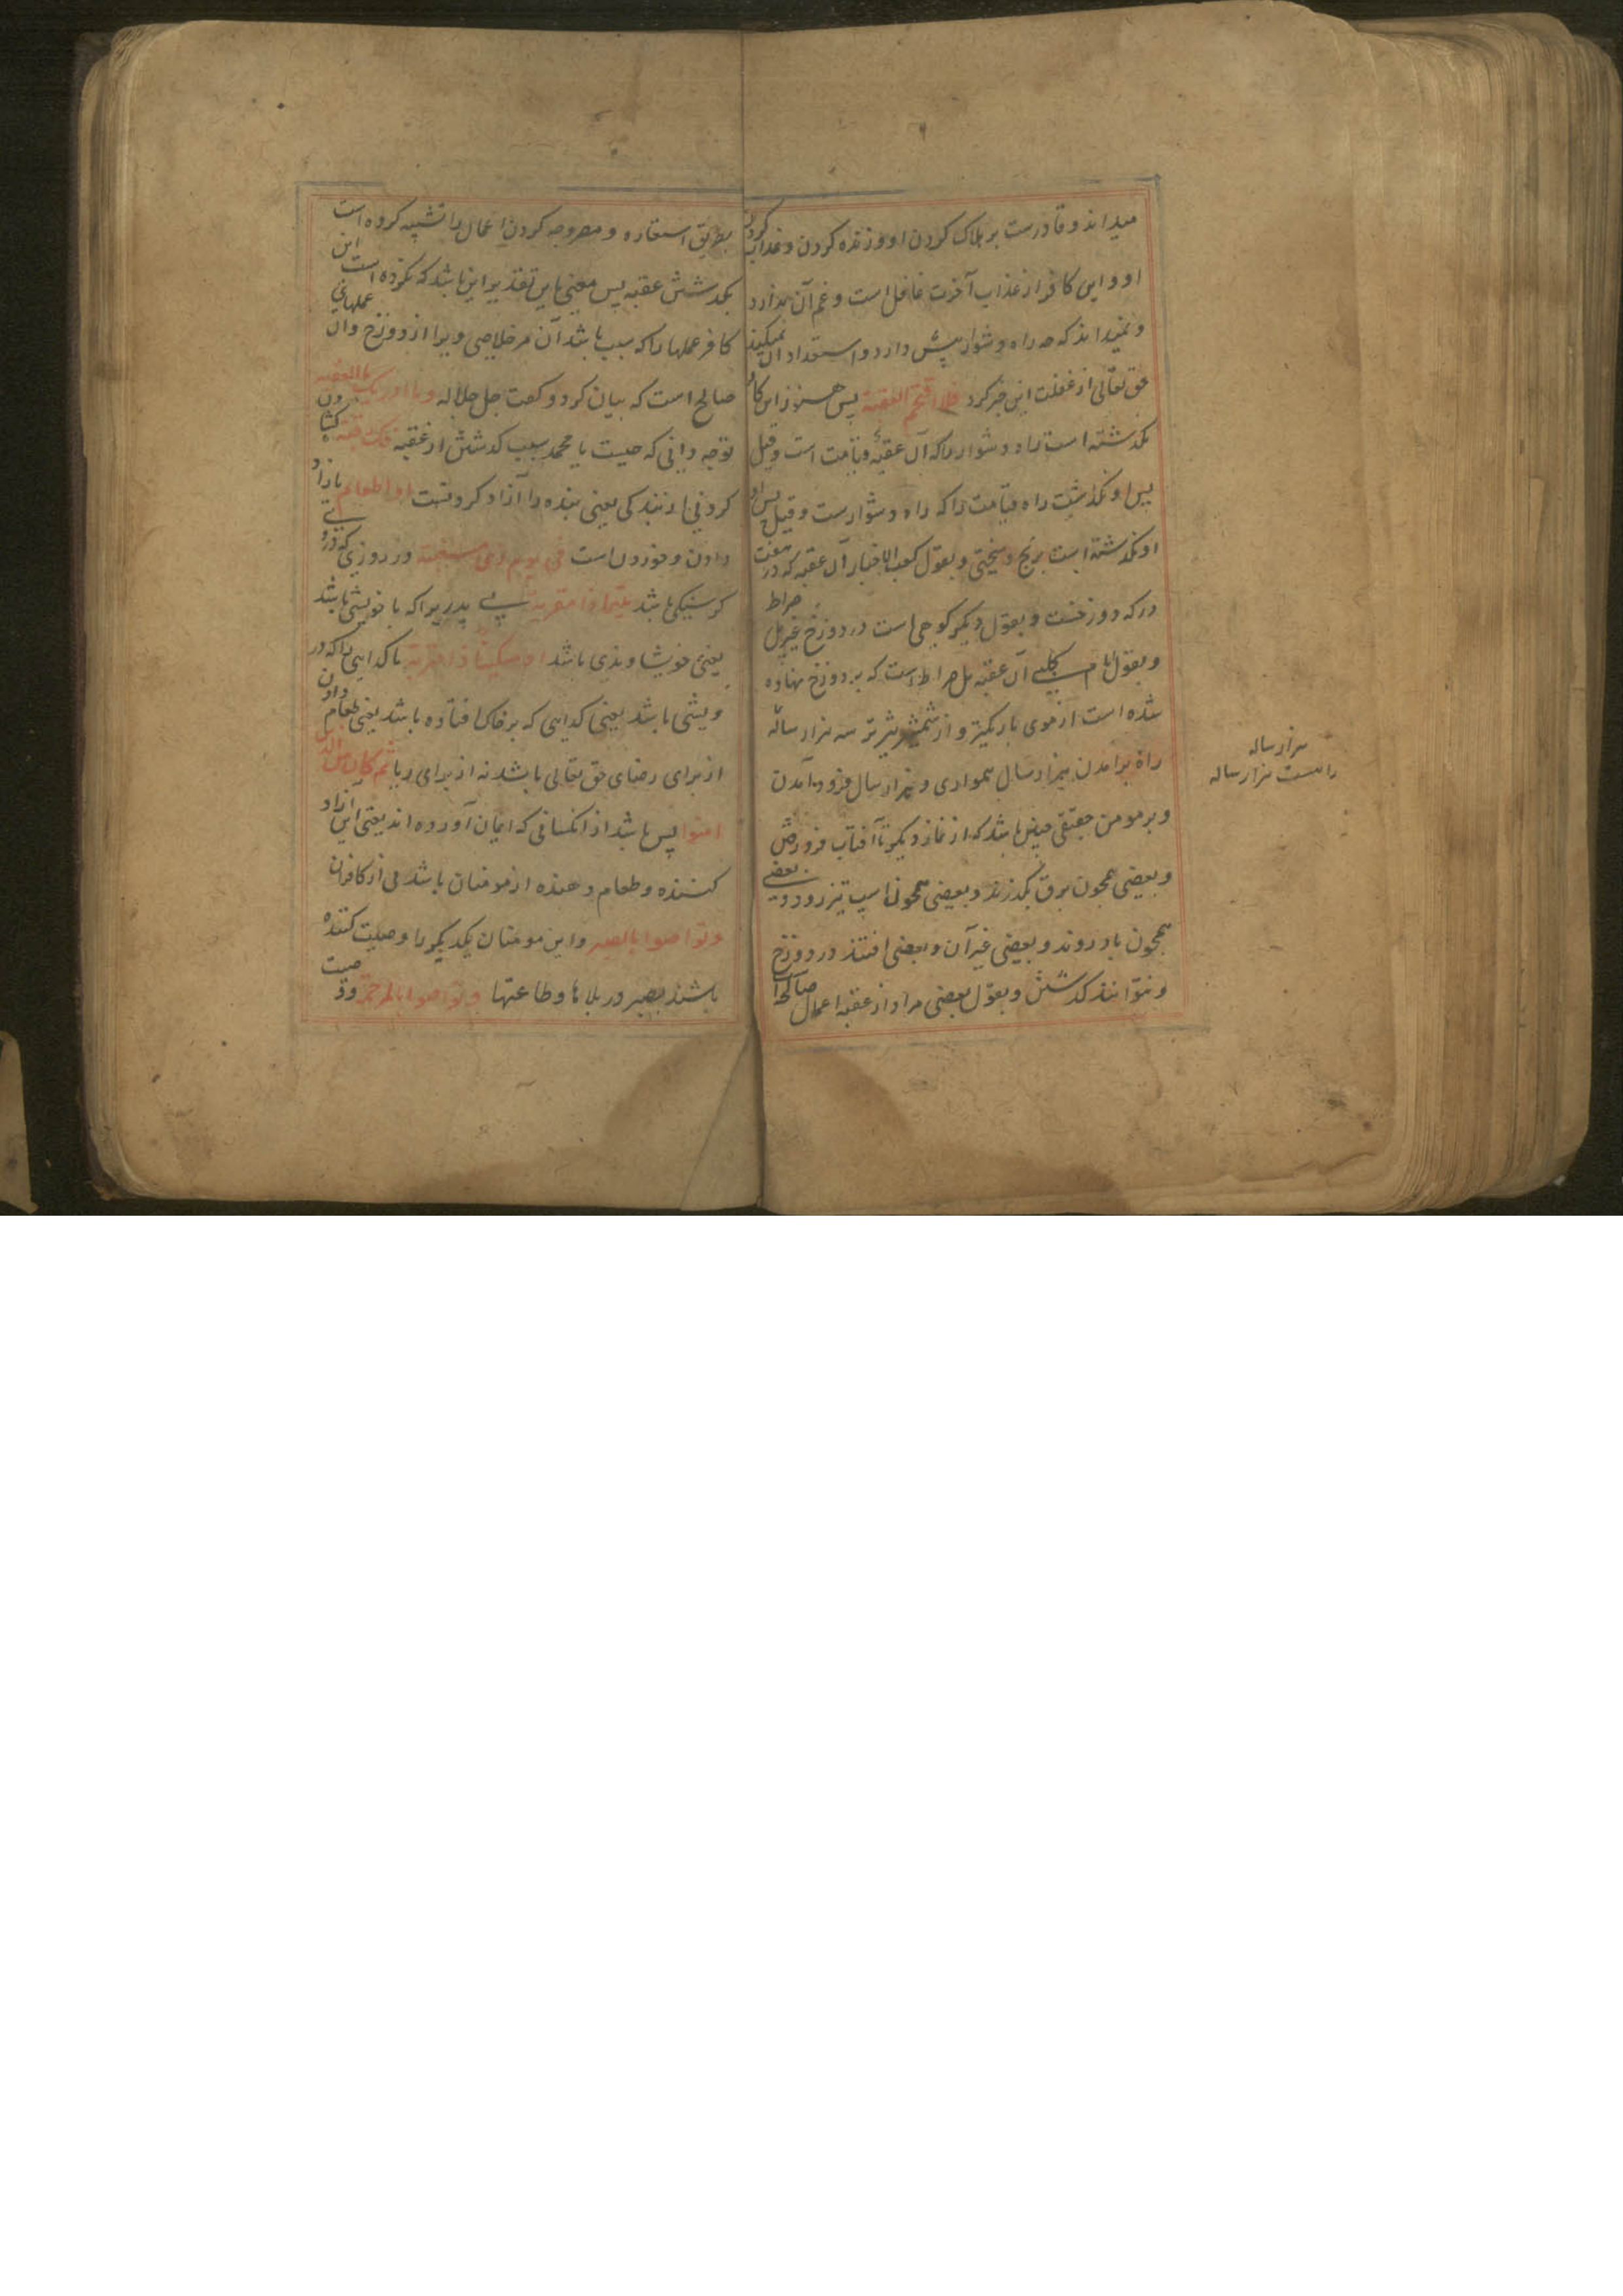 میداند و قادرست بر هلاک کردن او و زنده کردن و عذاب کردن
او و این کافر از عذاب آخرت غافل است و غم آن ندارد
و نمیداند که چه راه دشوار پیش دارد و استعداد آن نمیکند
حق تعالی از غفلت این خبر کرد فلا اقتحم العقبة پس هنوز این کافر
نکذشته است راه دشوار را که آن عقبهٔ قیامت است و قیل
پس او نکذشت راه قیامت را که راه دشوارست و قیل پس او
او نکذشته است برنج و سختی و بقول کعب الاخبار آن عقبه که در هفت
درکه دوزخست و بقول دیکر کوهی است در دوزخ غیر پل صراط
و بقول امام کلبی آن عقبه پل صراط است که بر دوزخ نهاده
شده است از موی باریکتر و از شمشیر تیزتر سه هزار ساله
راه برآمدن هزار سال همواری و هزار سال فرود آمدن
و بر مومن حقیقی چنین باشد که از نماز دیکر تا آفتاب فرو رفتن
و بعضی همچون برق بکذرند و بعضی همچون اسپ تیز رود و بعضی
همچون باد روند و بعضی غیر آن و بعضی افتند در دوزخ
و نتوانند کذشتن و بقول بعضی مراد از عقبه اعمال صالح را
هزار ساله
راهست هزار ساله
بطریق استعاره و مصروجه کردن اعمال را تشبیه کرده است
بکذشتن عقبه پس معنی باین تقدیر این باشد که نکرده است این
کافر عملها را که سبب باشد آن مر خلاصی ویرا از دوزخ و آن عملهای
صالح است که بیان کرد و کفت جل جلاله وما ادریک ما العقبه
تو چه دانی که چیست یا محمد سبب کذشتن از عقبه فک رقبة
کردنی از بندکی یعنی بنده را آزاد کردنست او اطعام یا زاد
دادن و خوردن است فی یوم ذی مسغبة در روزی که درو
کرسنکی باشد یتیما ذا مقربة بی پدریرا که با خویشی باشد
یعنی خویشاوندی باشد او مسکینا ذا متربة یا کدایی را که در
ویشی باشد یعنی کدایی که بر خاک افتاده باشد یعنی طعام دادن
از برای رضای حق تعالی باشد نه از برای ریا ثم کان من الذین
امنوا پس باشد از انکسانی که ایمان آورده اند یعنی این آزاد
کننده و طعام دهنده از مومنان باشد نی از کافران
و تواصوا بالصبر و این مومنان یکدیکر را وصیت کننده
باشند بصبر در بلاها و طاعتها و تواصوا بالمرحمة و وصیت